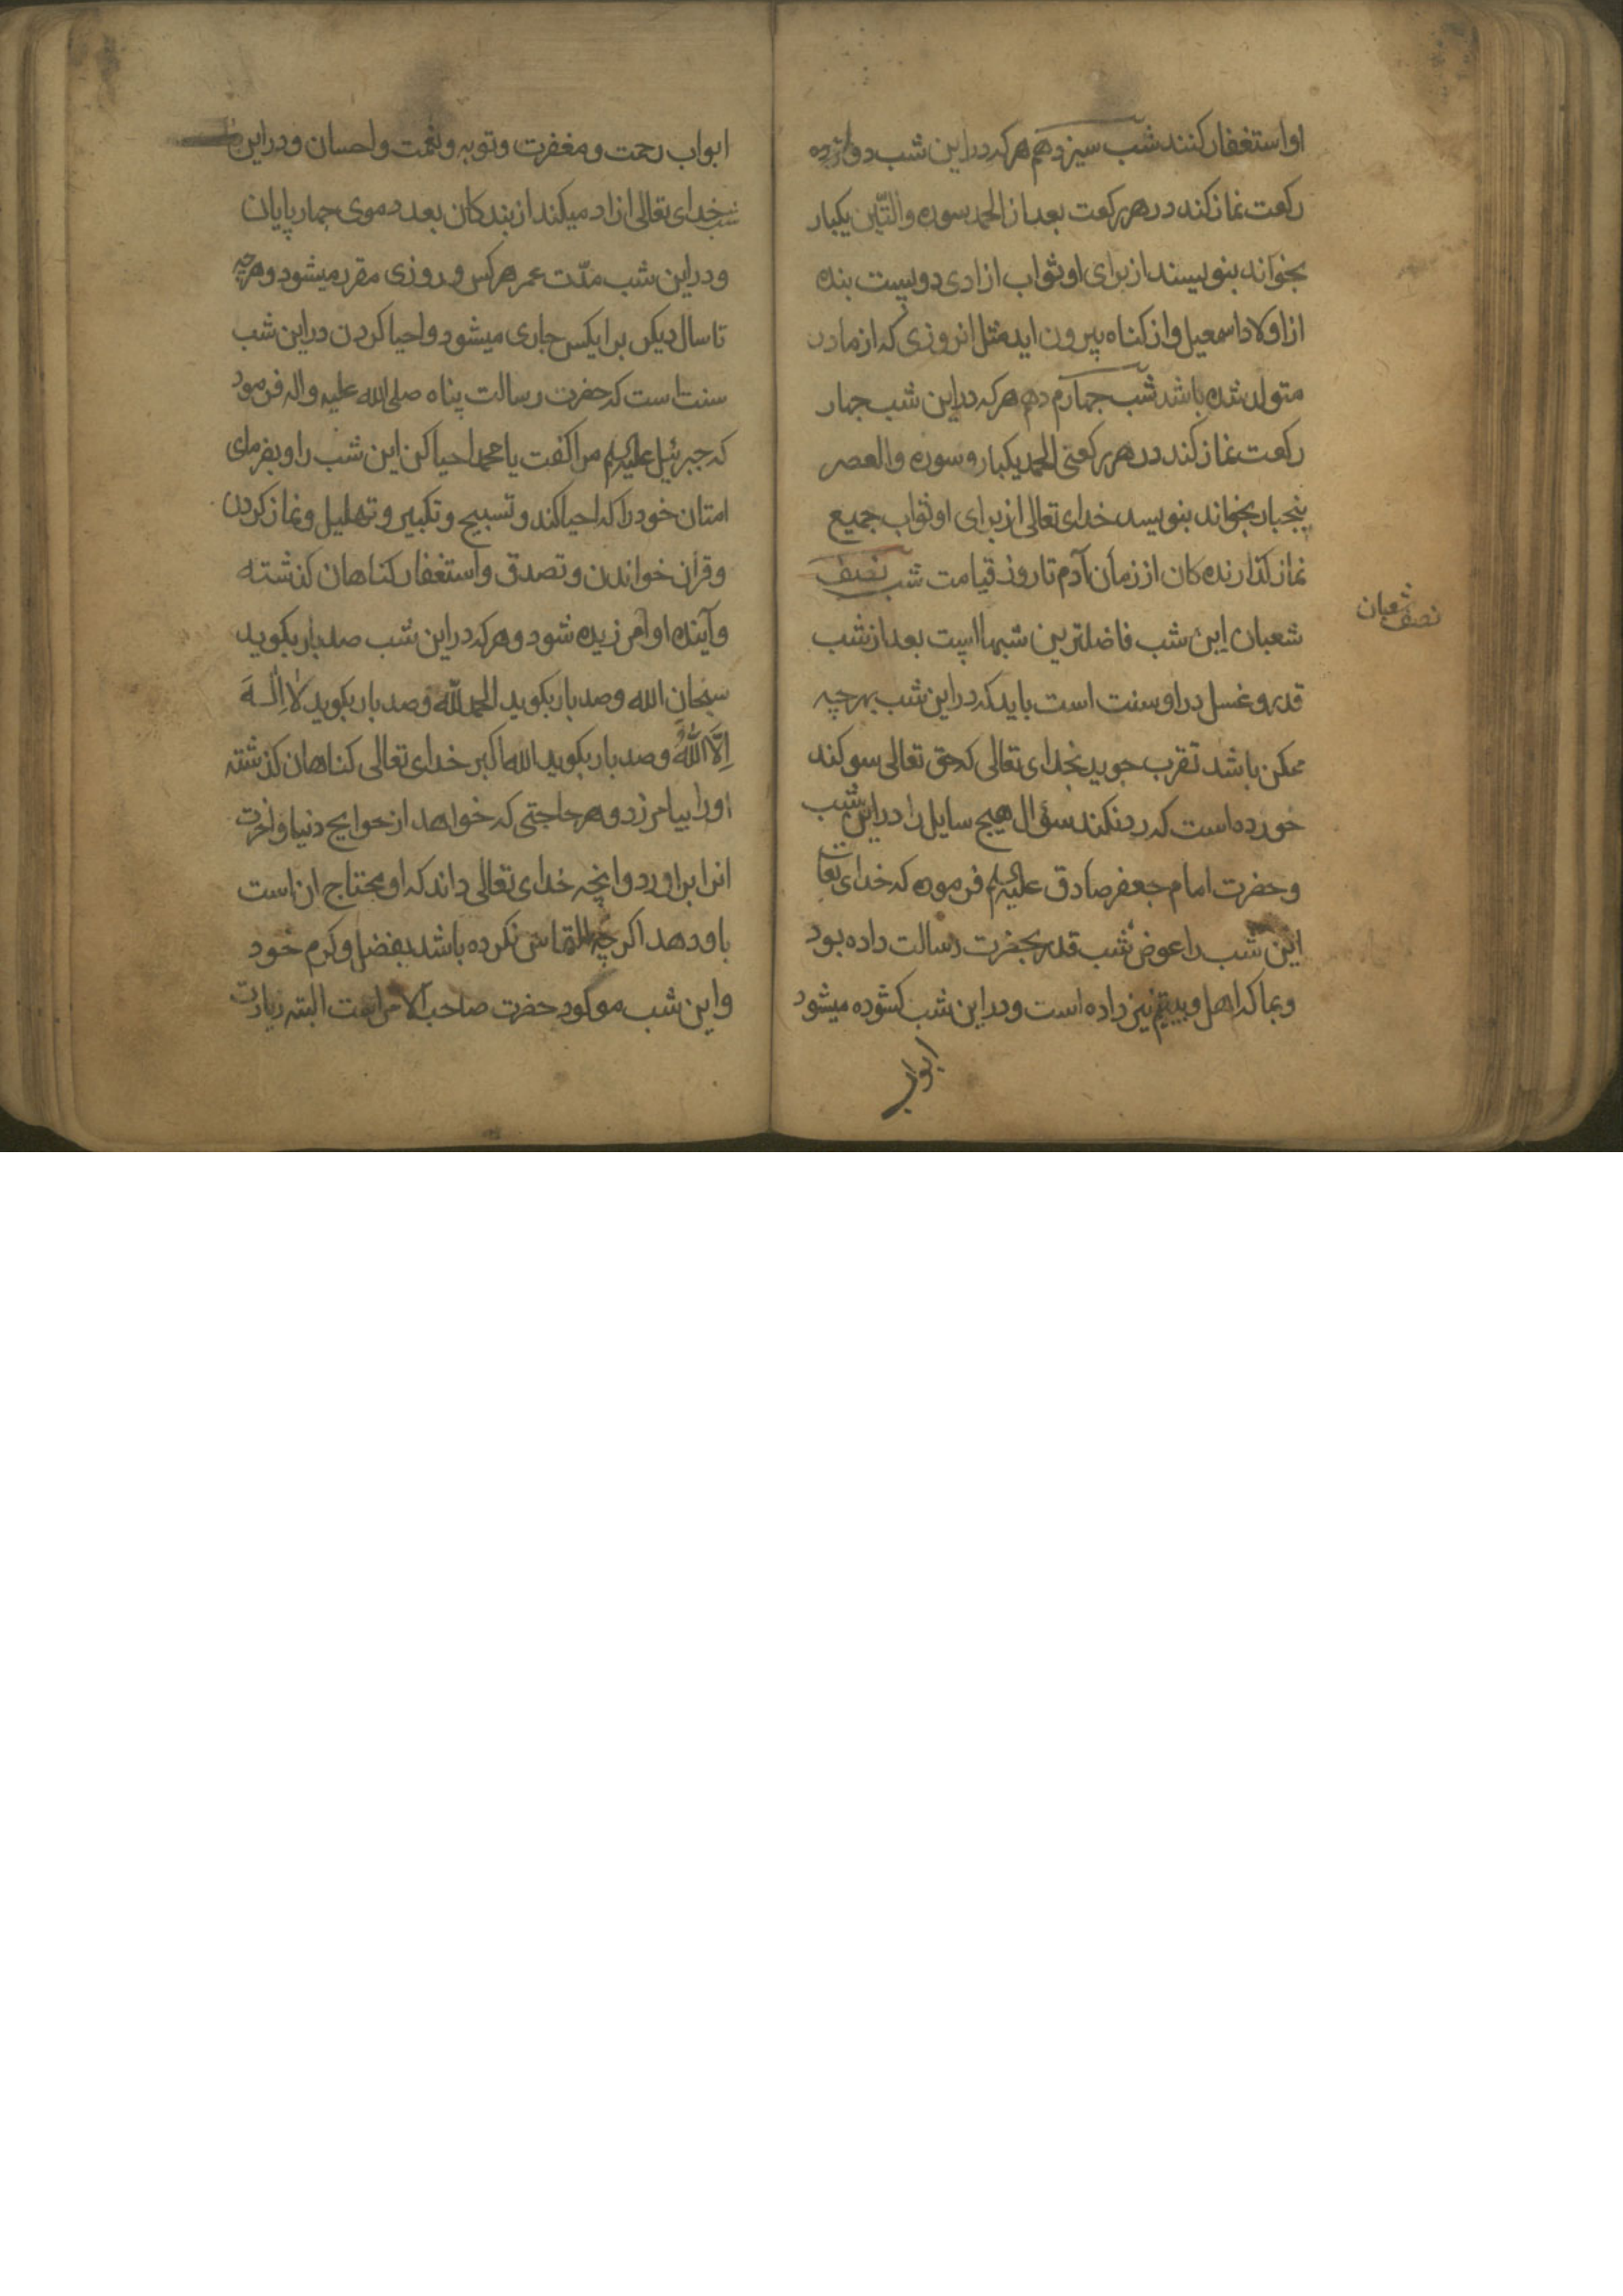 او استغفار کنند شب سیزدهم هر که در این شب دوازده
رکعت نماز کند در هر رکعت بعد از الحمد سوره والتّین یکبار
بخواند بنویسند از برای او ثواب ازادی دویست بنده
از اولاد اسمعیل و از کناه بیرون اید مثل انروزی که از مادر
متولد شده باشد شب چهاردهم هر که در این شب چهار
رکعت نماز کند در هر رکعتی الحمد یکبار و سوره والعصر
پنجبار بخواند بنویسد خدای تعالی از برای او ثواب جمیع
نماز کذارنده کان از زمان آدم تا روز قیامت شب نصف
شعبان این شب فاضلترین شبها است بعد از شب
نصف شعبان
قدر و غسل در او سنت است باید که در این شب بهر چه
ممکن باشد تقرب جوید بخدای تعالی که حق تعالی سوکند
خورده است که رد نکند سؤال هیچ سایل را در این شب
و حضرت امام جعفر صادق علیه السلم فرموده که خدای تعالی
این شب را عوض شب قدر بحضرت رسالت داده بود
و بما که اهل و بیتیم نیز داده است و در این شب کشوده میشود
ابواب
ابواب رحمت و مغفرت و توبه و نعمت و احسان و در این
شب خدای تعالی ازاد میکند از بندکان بعدد موی چهار پایان
و در این شب مدّت عمر هر کس و روزی مقرر میشود و هر چه
تا سال دیکر بر ایکس جاری میشود و احیا کردن در این شب
سنت است که حضرت رسالت پناه صلی الله علیه و اله فرمود
که جبرئیل علیه السلم مرا کفت یا محمد احیا کن این شب را و بفرمای
امتان خود را که احیا کند و تسبیح و تکبیر و تهلیل و نماز کردن
و قران خواندن و تصدق و استغفار کناهان کذشته
و آینده او آمرزیده شود و هر که در این شب صد بار بکوید
سبحان الله و صد بار بکوید الحمد لله و صد بار بکوید لا اِلٰهَ
اِلَّا اللهُ و صد بار بکوید الله اکبر خدای تعالی کناهان کذشته
اورا بیامرزد و هر حاجتی که خواهد از حوایج دنیا و اخرت
انرا براورد و انچه خدای تعالی داند که او محتاج ان است
باو دهد اکر چه التماس نکرده باشد بفضل و کرم خود
و این شب مولود حضرت صاحب الامر است البته زیارت